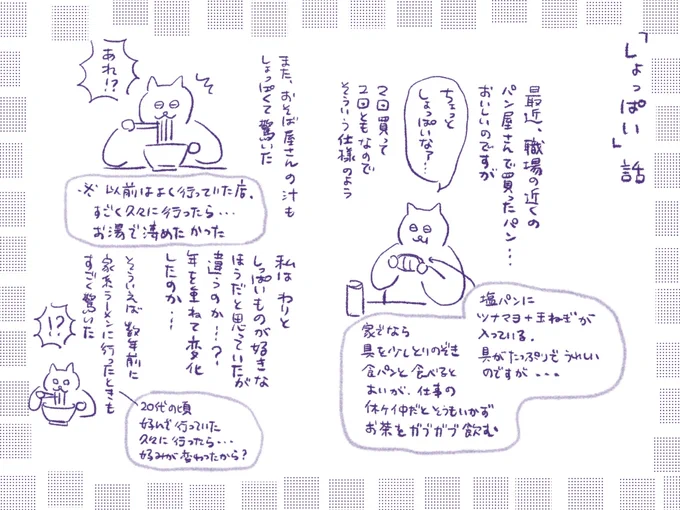 「しょっぱい」話
最近、職場の近くの
パン屋さんで買ったパン…
おいしいのですが
ちょっと
しょっぱいなァ…
2回買って
2回ともなので
そういう仕様のよう
塩パンに
ツナマヨ+玉ねぎが
入っている.
具がたっぷりでうれしい
のですが...
家でなら
具を少しとりのぞき
食パンと食べると
よいが、仕事の
休ケイ中だとそうもいかず
お茶をガブガブ飲む
また、おそば屋さんの汁も
しょっぱくて驚いた
あれ!?
※以前はよく行っていた店.
すごく久々に行ったら...
お湯で薄めたかった
私はわりと
しょっぱいものが好きな
ほうだと思っていたが
違うのか…?
年を重ねて変化
したのか…
そういえば数年前に
家系ラーメンに行ったときも
すごく驚いた
!?
20代の頃
好んで行っていた
久々に行ったら...
好みが変わったから?